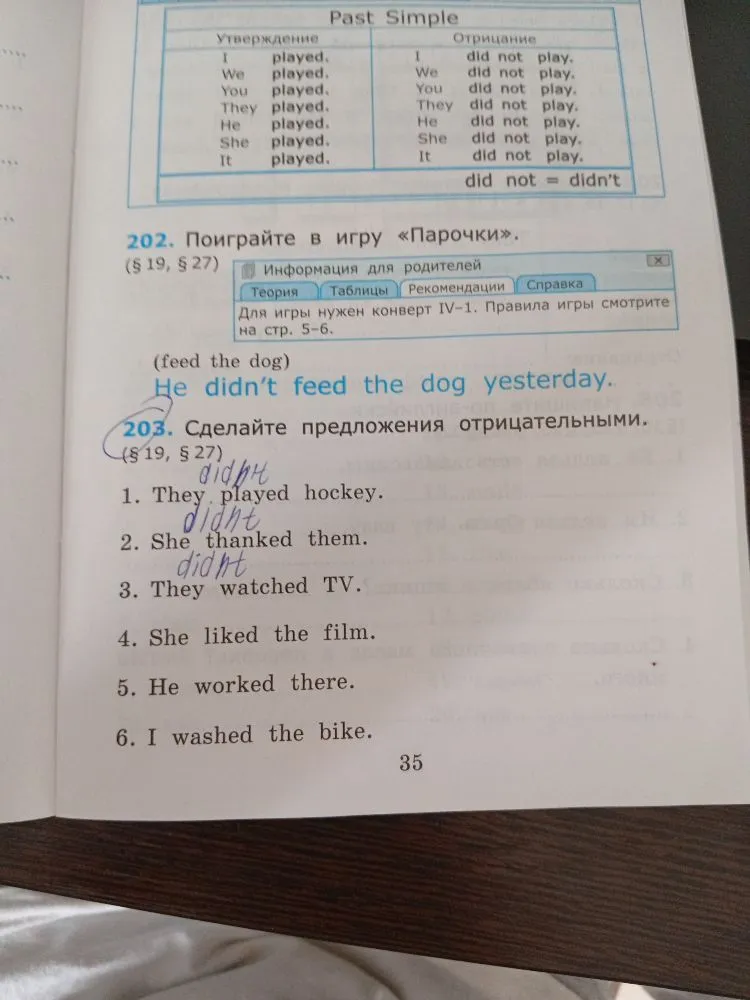 Past Simple
Утверждение Отрицание
I played. I did not play.
We played. We did not play.
You played. You did not play.
They played. They did not play.
He played. He did not play.
She played. She did not play.
It played. It did not play.
did not = didn't
202. Поиграйте в игру «Парочки».
(§ 19, § 27)
Информация для родителей
Теория Таблицы Рекомендации Справка
Для игры нужен конверт IV–1. Правила игры смотрите
на стр. 5–6.
(feed the dog)
He didn't feed the dog yesterday.
203. Сделайте предложения отрицательными.
(§ 19, § 27)
didn't
1. They played hockey.
didnt
2. She thanked them.
didnt
3. They watched TV.
4. She liked the film.
5. He worked there.
6. I washed the bike.
35